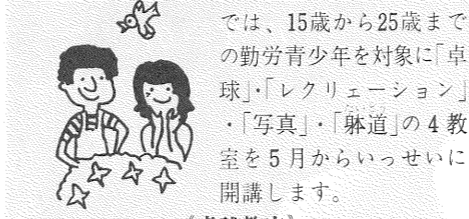 では、15歳から25歳まで
の勤労青少年を対象に「卓
球」・「レクリェーション」
・「写真」・「躰道」の4教
室を5月からいっせいに
開講します。